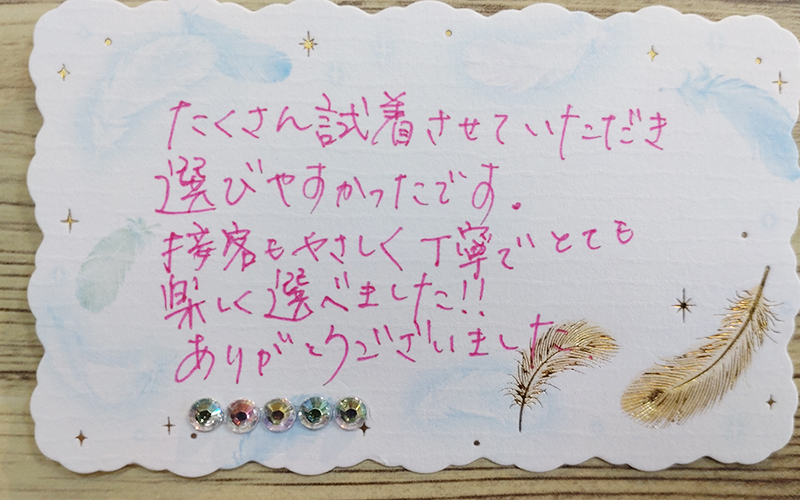 たくさん試着させていただき
選びやすかったです。
接客もやさしく丁寧でとても
楽しく選べました!!
ありがとうございました.